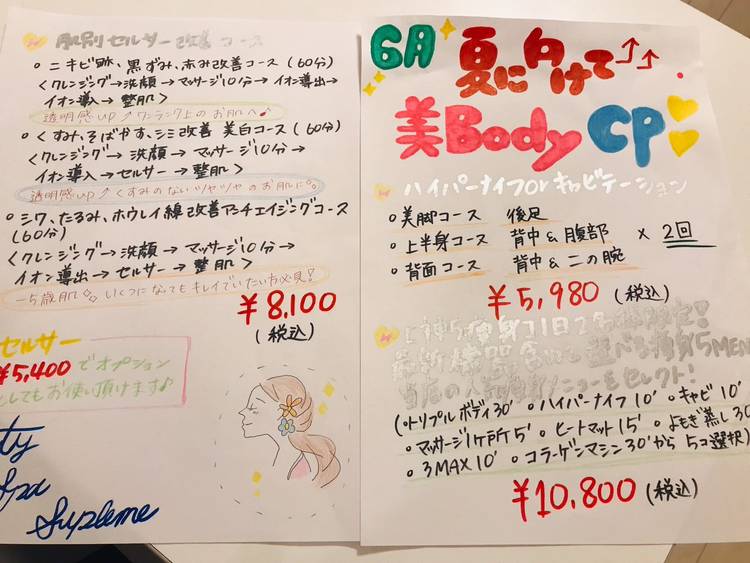 肌別セルサー改善コース
○ニキビ跡、黒ずみ、赤み改善コース(60分)
<クレンジング→洗顔→マッサージ10分→イオン導出→
イオン導入→整肌>
透明感up↑ワンランク上のお肌へ♪
○くすみ、そばかす、シミ改善 美白コース(60分)
<クレンジング→洗顔→マッサージ10分→
イオン導入→セルサー→整肌>
透明感up↑くすみのないツヤツヤのお肌に
○シワ、たるみ、ホウレイ線改善アンチエイジングコース
(60分)
<クレンジング→洗顔→マッサージ10分→
イオン導出→セルサー→整肌>
-5歳肌 いくつになってもキレイでいたい方必見!
¥8,100
(税込)
セルサー
¥5,400でオプション
としてもお使い頂けます♪
ty
Spa
Supleme
6月 夏に向けて↑↑
美Body CP
ハイパーナイフorキャビテーション
・美脚コース 後足
・上半身コース 背中&腹部 × 2回
・背面コース 背中&二の腕
¥5,980(税込)
選べる痩身5MENU
当店の人気痩身メニューをセレクト!
(・トリプルボディ30' ・ハイパーナイフ10' ・キャビ10'
・マッサージ1ヶ所5' ・ヒートマット15' ・よもぎ蒸し30
・3MAX10' ・コラーゲンマシン30'から5コ選択)
¥10,800(税込)